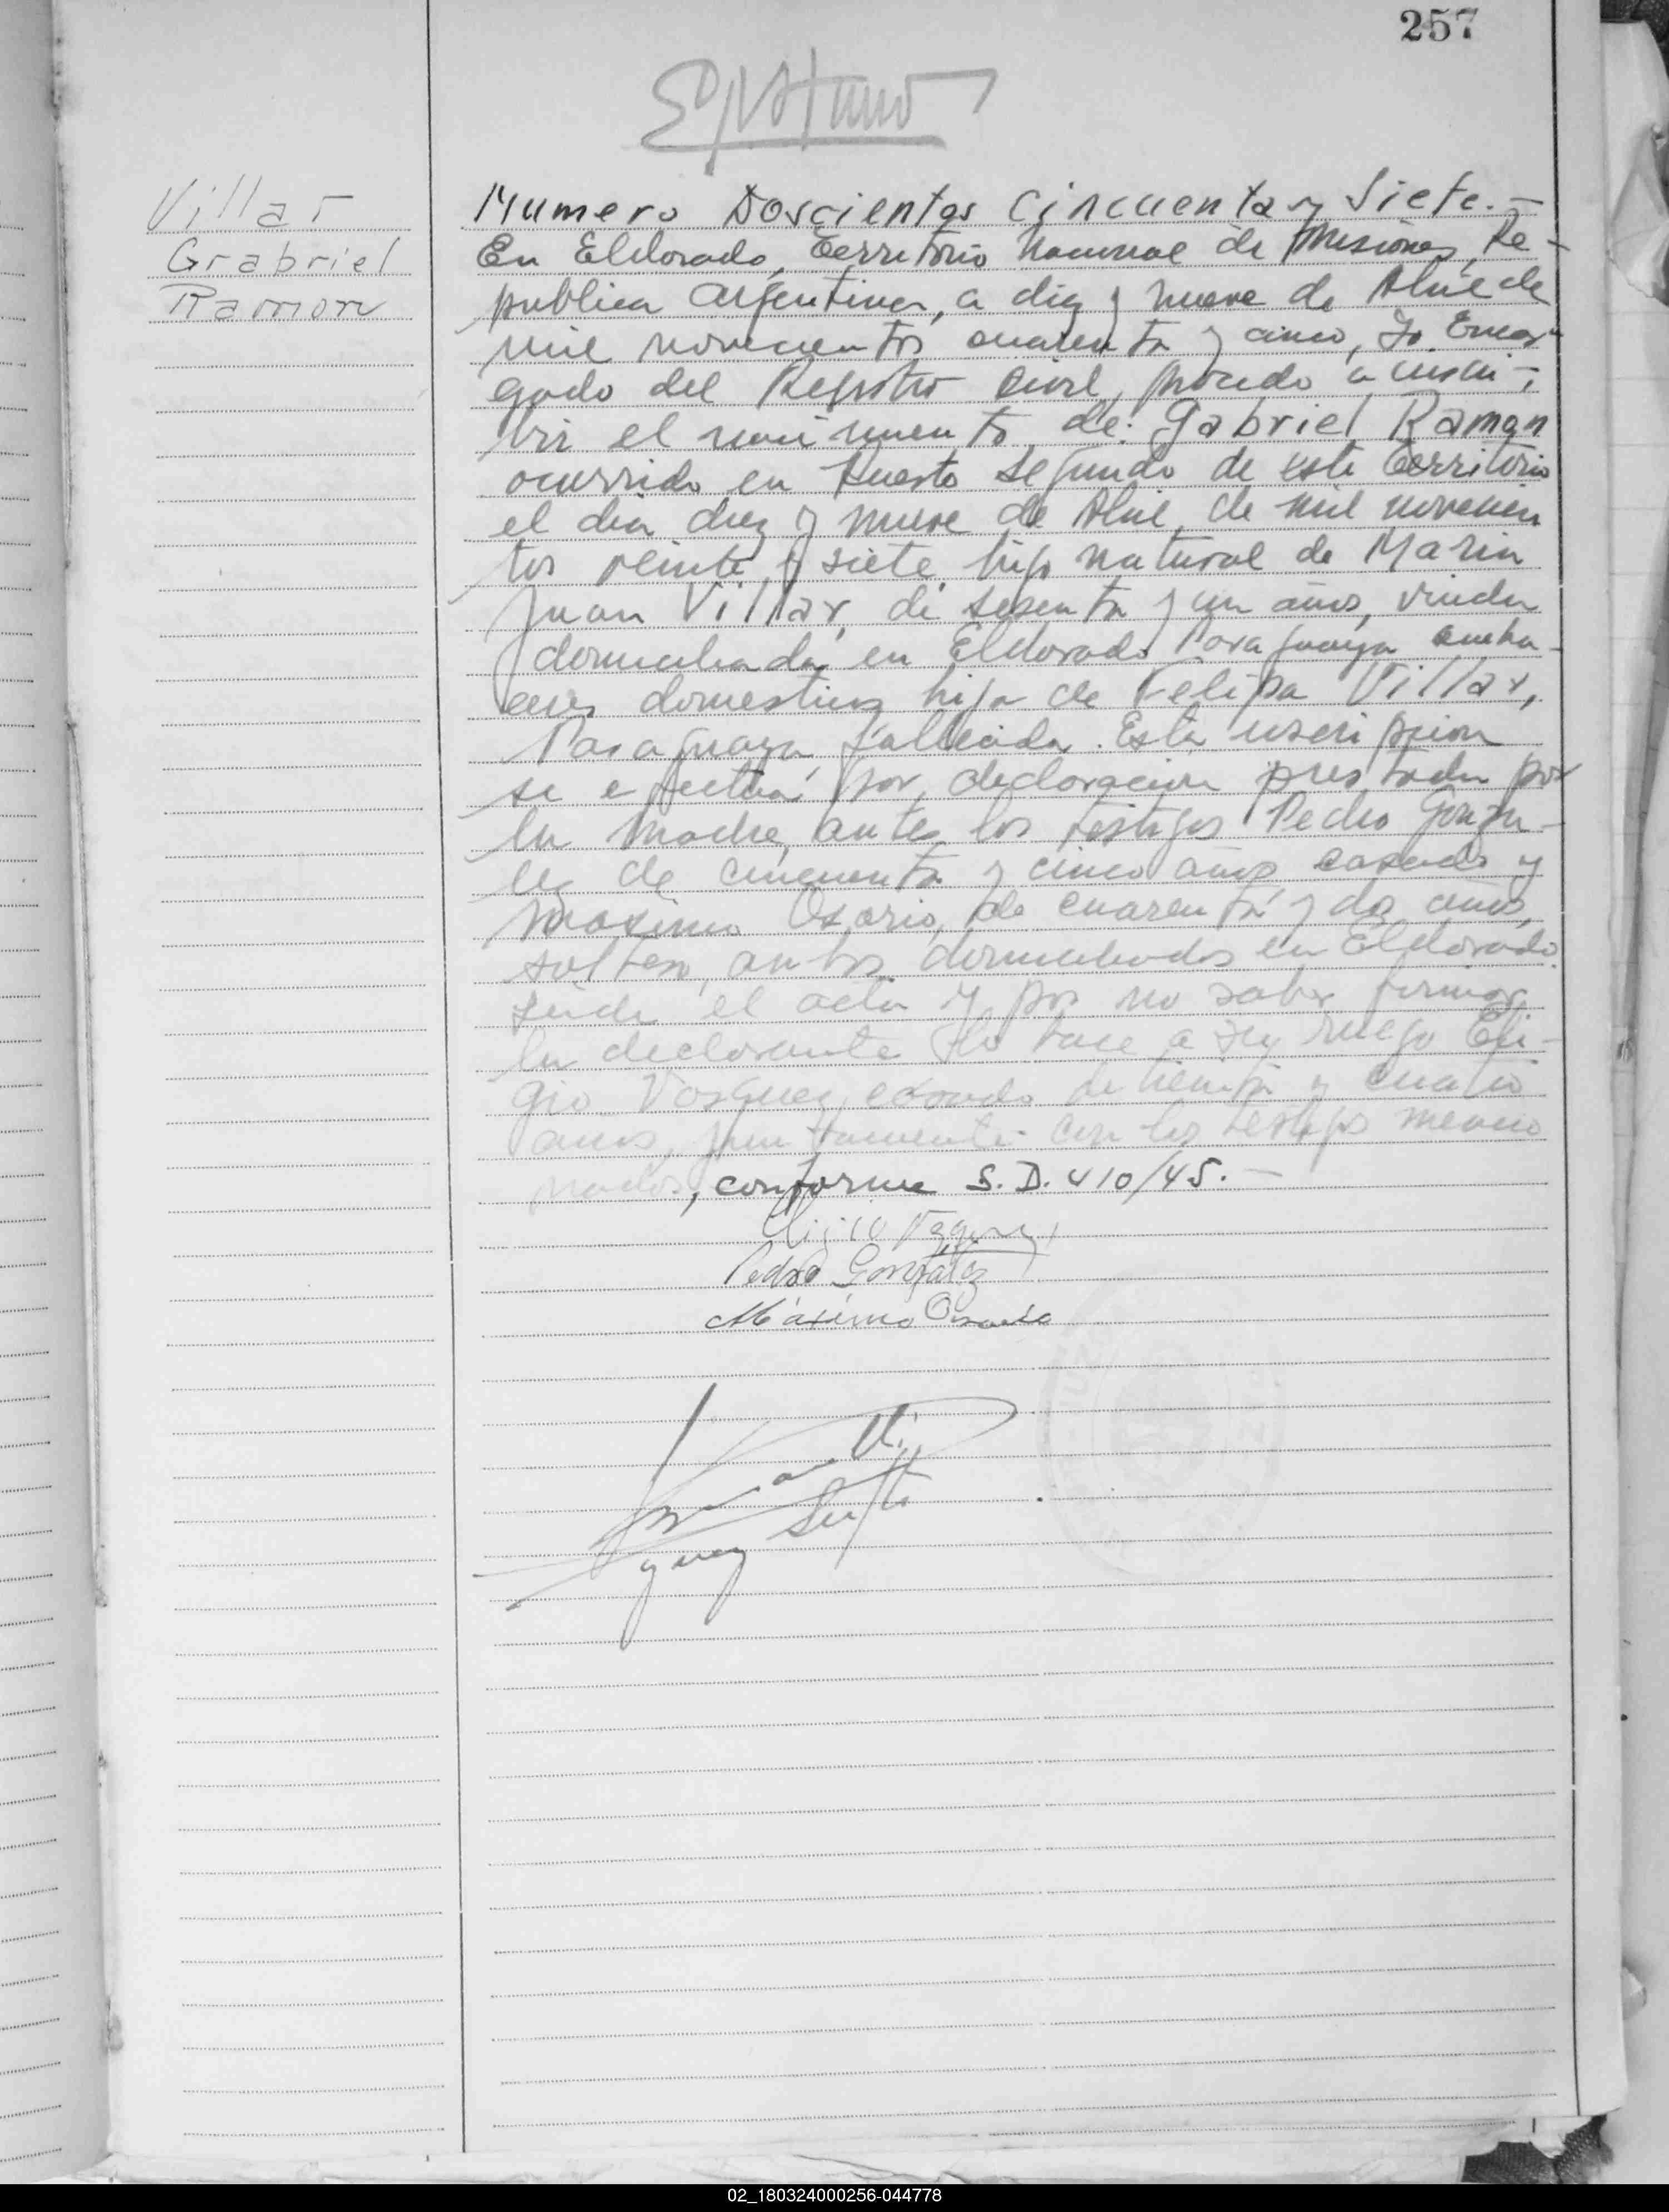 257
Villar
Grabriel
Ramon
Numero Doscientos Cincuenta y Siete.-
En Eldorado, Territorio Nacional de Misiones, Re-
publica Argentina, a diez y nueve de Abril de
mil novecientos cuarenta y cinco, Yo Encar-
gado del Registro Civil, procedo a inscri-
bir el nacimiento de: Gabriel Ramon
ocurrido en Puerto Segundo de este Territorio
el dia diez y nueve de Abril de mil novecien
tos veinte y siete, hijo natural de Maria
Juan Villar, de sesenta y un años, viuda
domiciliada en Eldorado Paraguaya queha-
ceres domesticos hija de Felipa Villar,
Paraguaya, fallecida. Esta inscripcion
se efectua por declaracion prestada por
la madre, antes los testigos Pedro Gonza-
lez de cincuenta y cinco años casado y
Maximo Osorio, de cuarenta y dos años,
soltero, ambos domiciliados en Eldorado.
Leida el acta y por no saber firmar
la declarante lo hace a su ruego Eli-
gio Vasquez, casado de treinta y cuatro
anos, juntamente con los testigos mencio
nados, conforme S.D. 410/45.-
Eligio Vazquez
Pedro González
Máximo Osorio
02_180324000256-044778